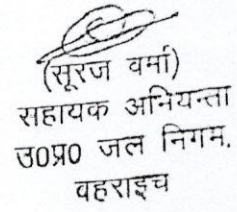 (सूरज वर्मा)
सहायक अभियन्ता
उ0प्र0 जल निगम,
वहराइच